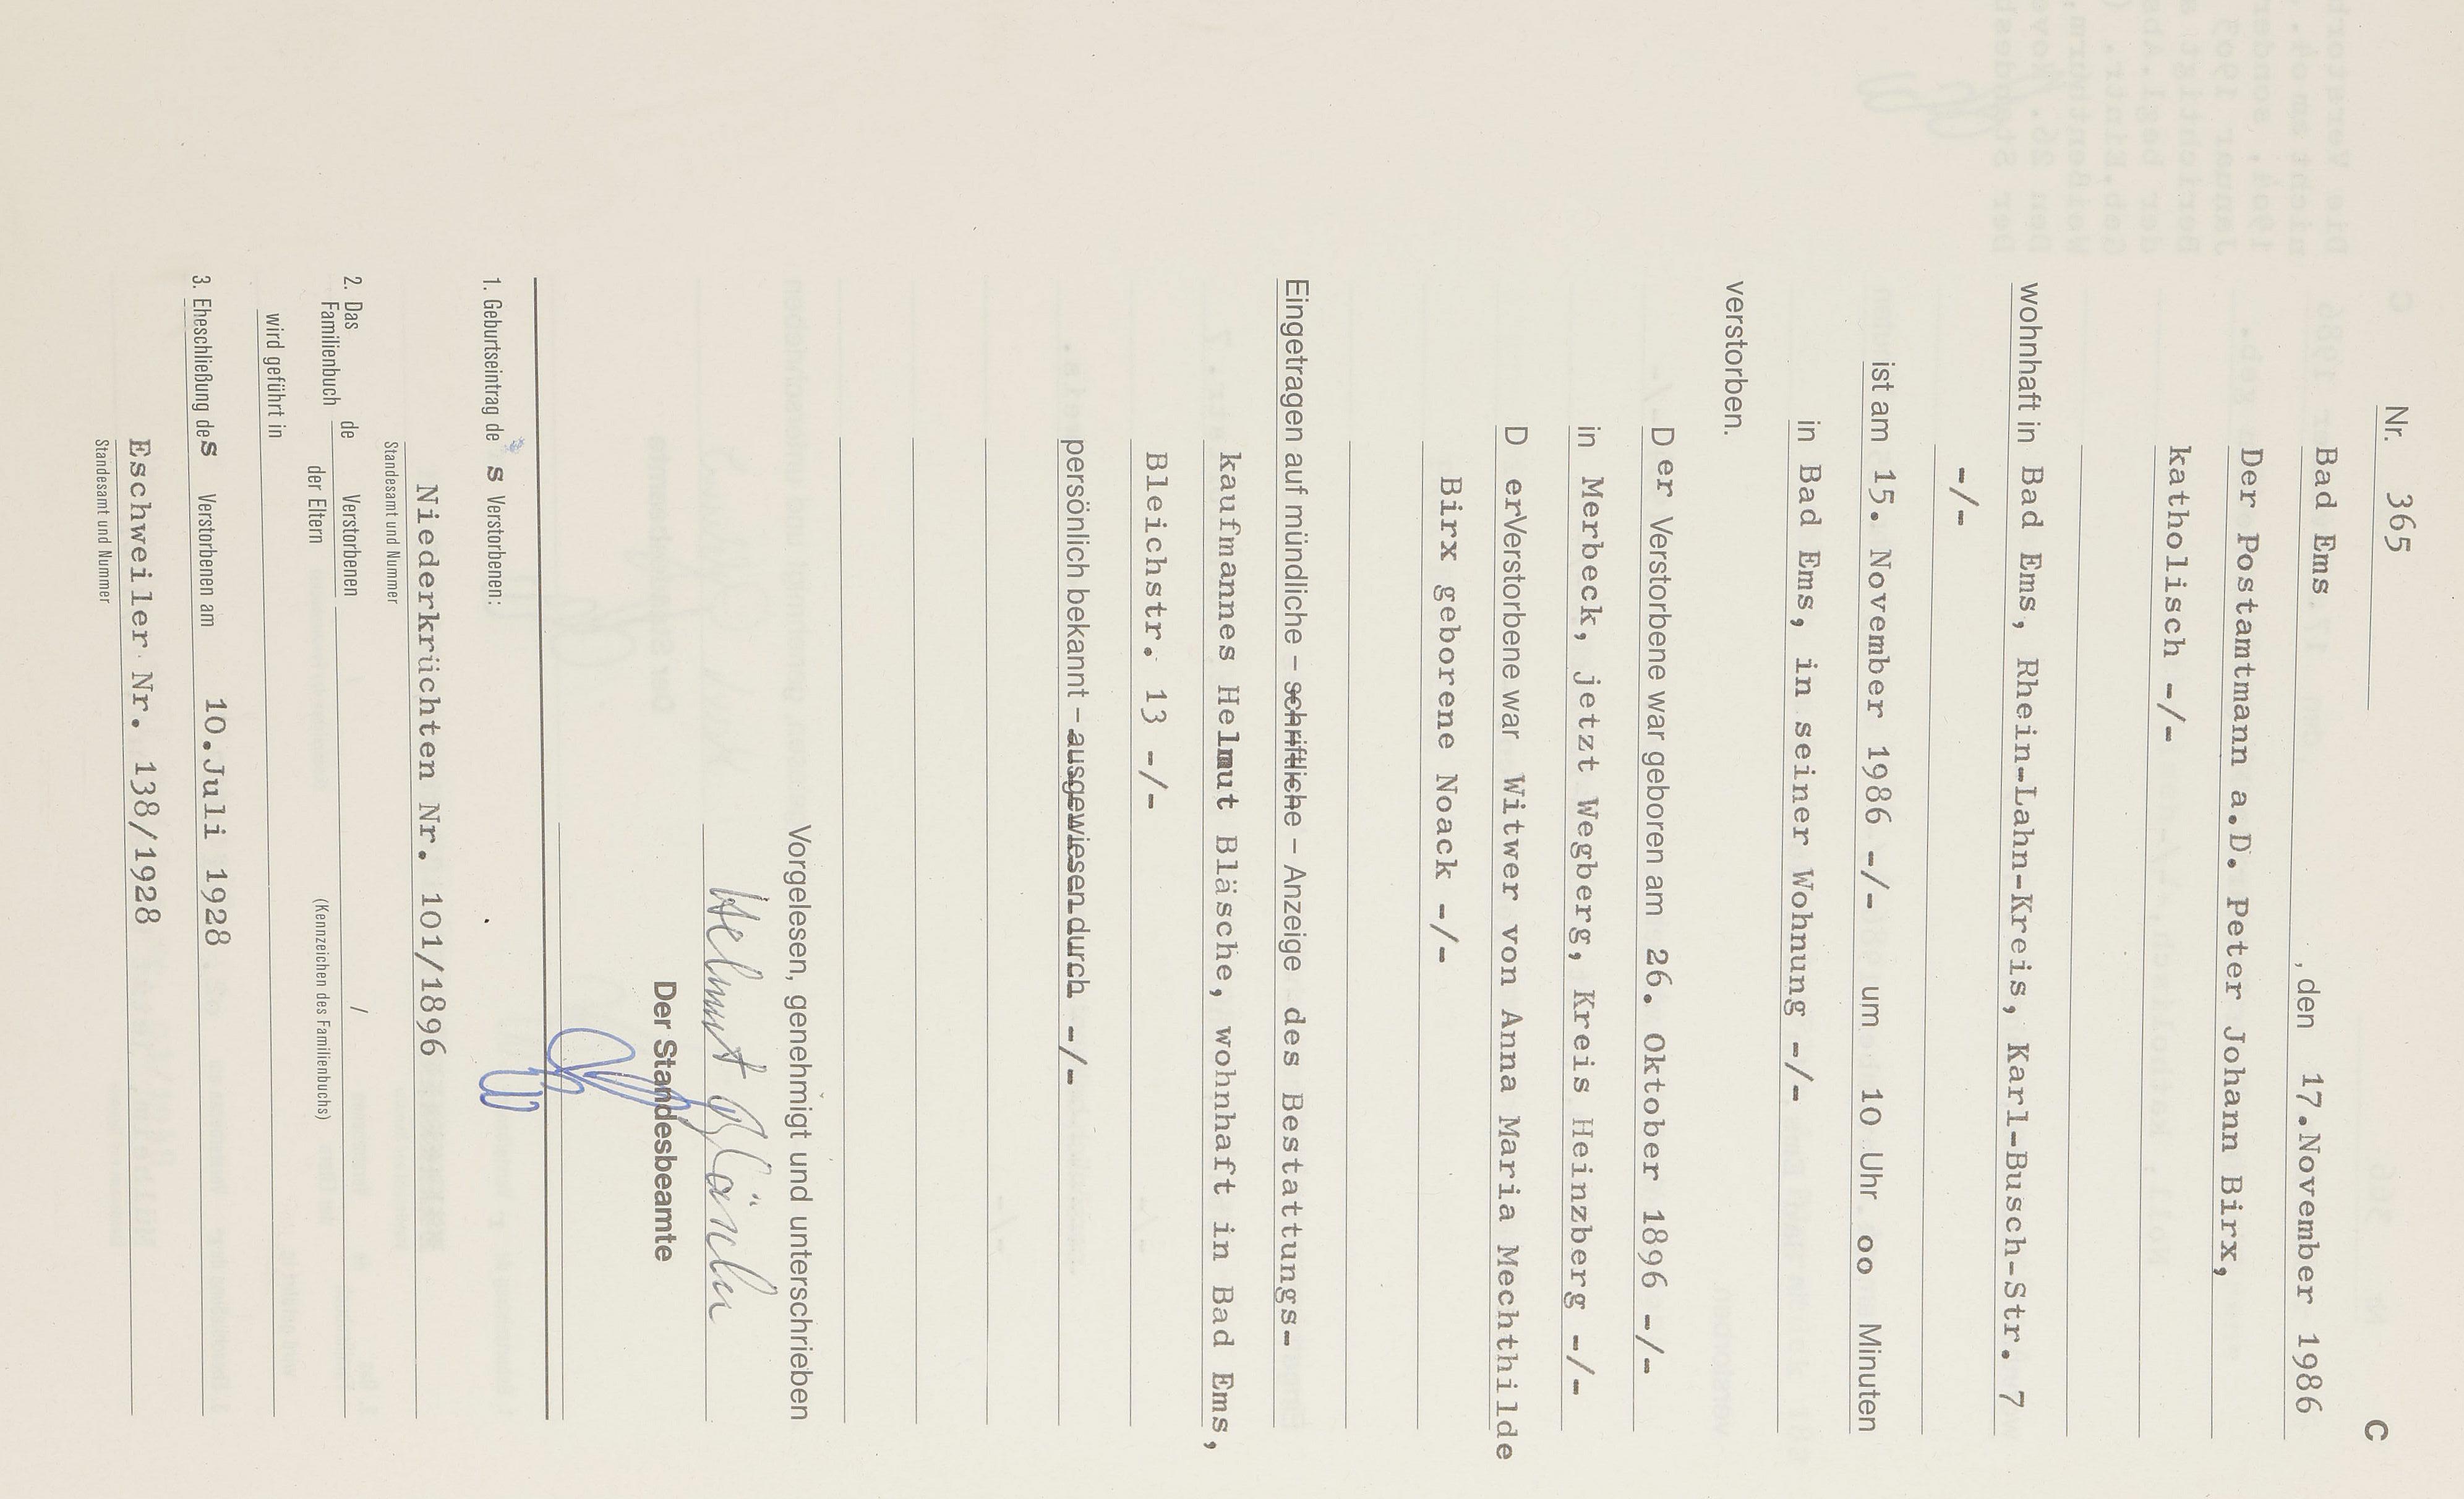 C
Nr. 365
Bad Ems , den 17.November 1986
Der Postamtmann a.D. Peter Johann Birx,
katholisch -/-
wohnhaft in Bad Ems, Rhein-Lahn-Kreis, Karl-Busch-Str. 7
-/-
ist am 15. November 1986 -/- um 10 Uhr oo Minuten
in Bad Ems, in seiner Wohnung -/-
verstorben.
D er Verstorbene war geboren am 26. Oktober 1896 -/-
in Merbeck, jetzt Wegberg, Kreis Heinzberg -/-
D er Verstorbene war Witwer von Anna Maria Mechthilde
Birx geborene Noack -/-
Eingetragen auf mündliche – schriftliche – Anzeige des Bestattungs-
kaufmannes Helmut Bläsche, wohnhaft in Bad Ems,
Bleichstr. 13 -/-
persönlich bekannt – ausgewiesen durch -/-
Vorgelesen, genehmigt und unterschrieben
Helmut Bläsche
Der Standesbeamte
1. Geburtseintrag de s Verstorbenen:
Niederkrüchten Nr. 101/1896
Standesamt und Nummer
2. Das Familienbuch de Verstorbenen / der Eltern
(Kennzeichen des Familienbuchs)
wird geführt in
3. Eheschließung des Verstorbenen am 10.Juli 1928
Eschweiler Nr. 138/1928
Standesamt und Nummer